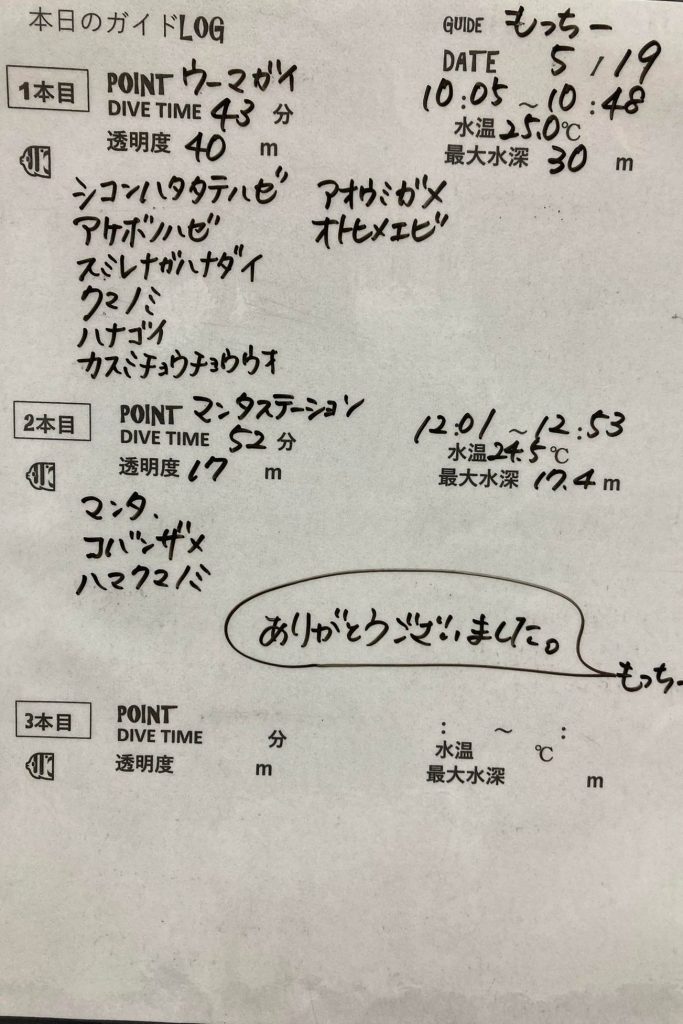 本日のガイドLOG
GUIDE もっちー
DATE 5/19
1本目
POINT ウーマガイ
10:05 ~ 10:48
DIVE TIME 43 分
水温 25.0℃
透明度 40 m
最大水深 30 m
シコンハタタテハゼ アオウミガメ
アケボノハゼ オトヒメエビ
スミレナガハナダイ
クマノミ
ハナゴイ
カスミチョウチョウウオ
2本目
POINT マンタステーション
12:01 ~ 12:53
DIVE TIME 52 分
水温 24.5℃
透明度 17 m
最大水深 17.4 m
マンタ.
コバンザメ
ハマクマノミ
ありがとうございました。
もっちー
3本目
POINT
: ~ :
DIVE TIME 分
水温 ℃
透明度 m
最大水深 m